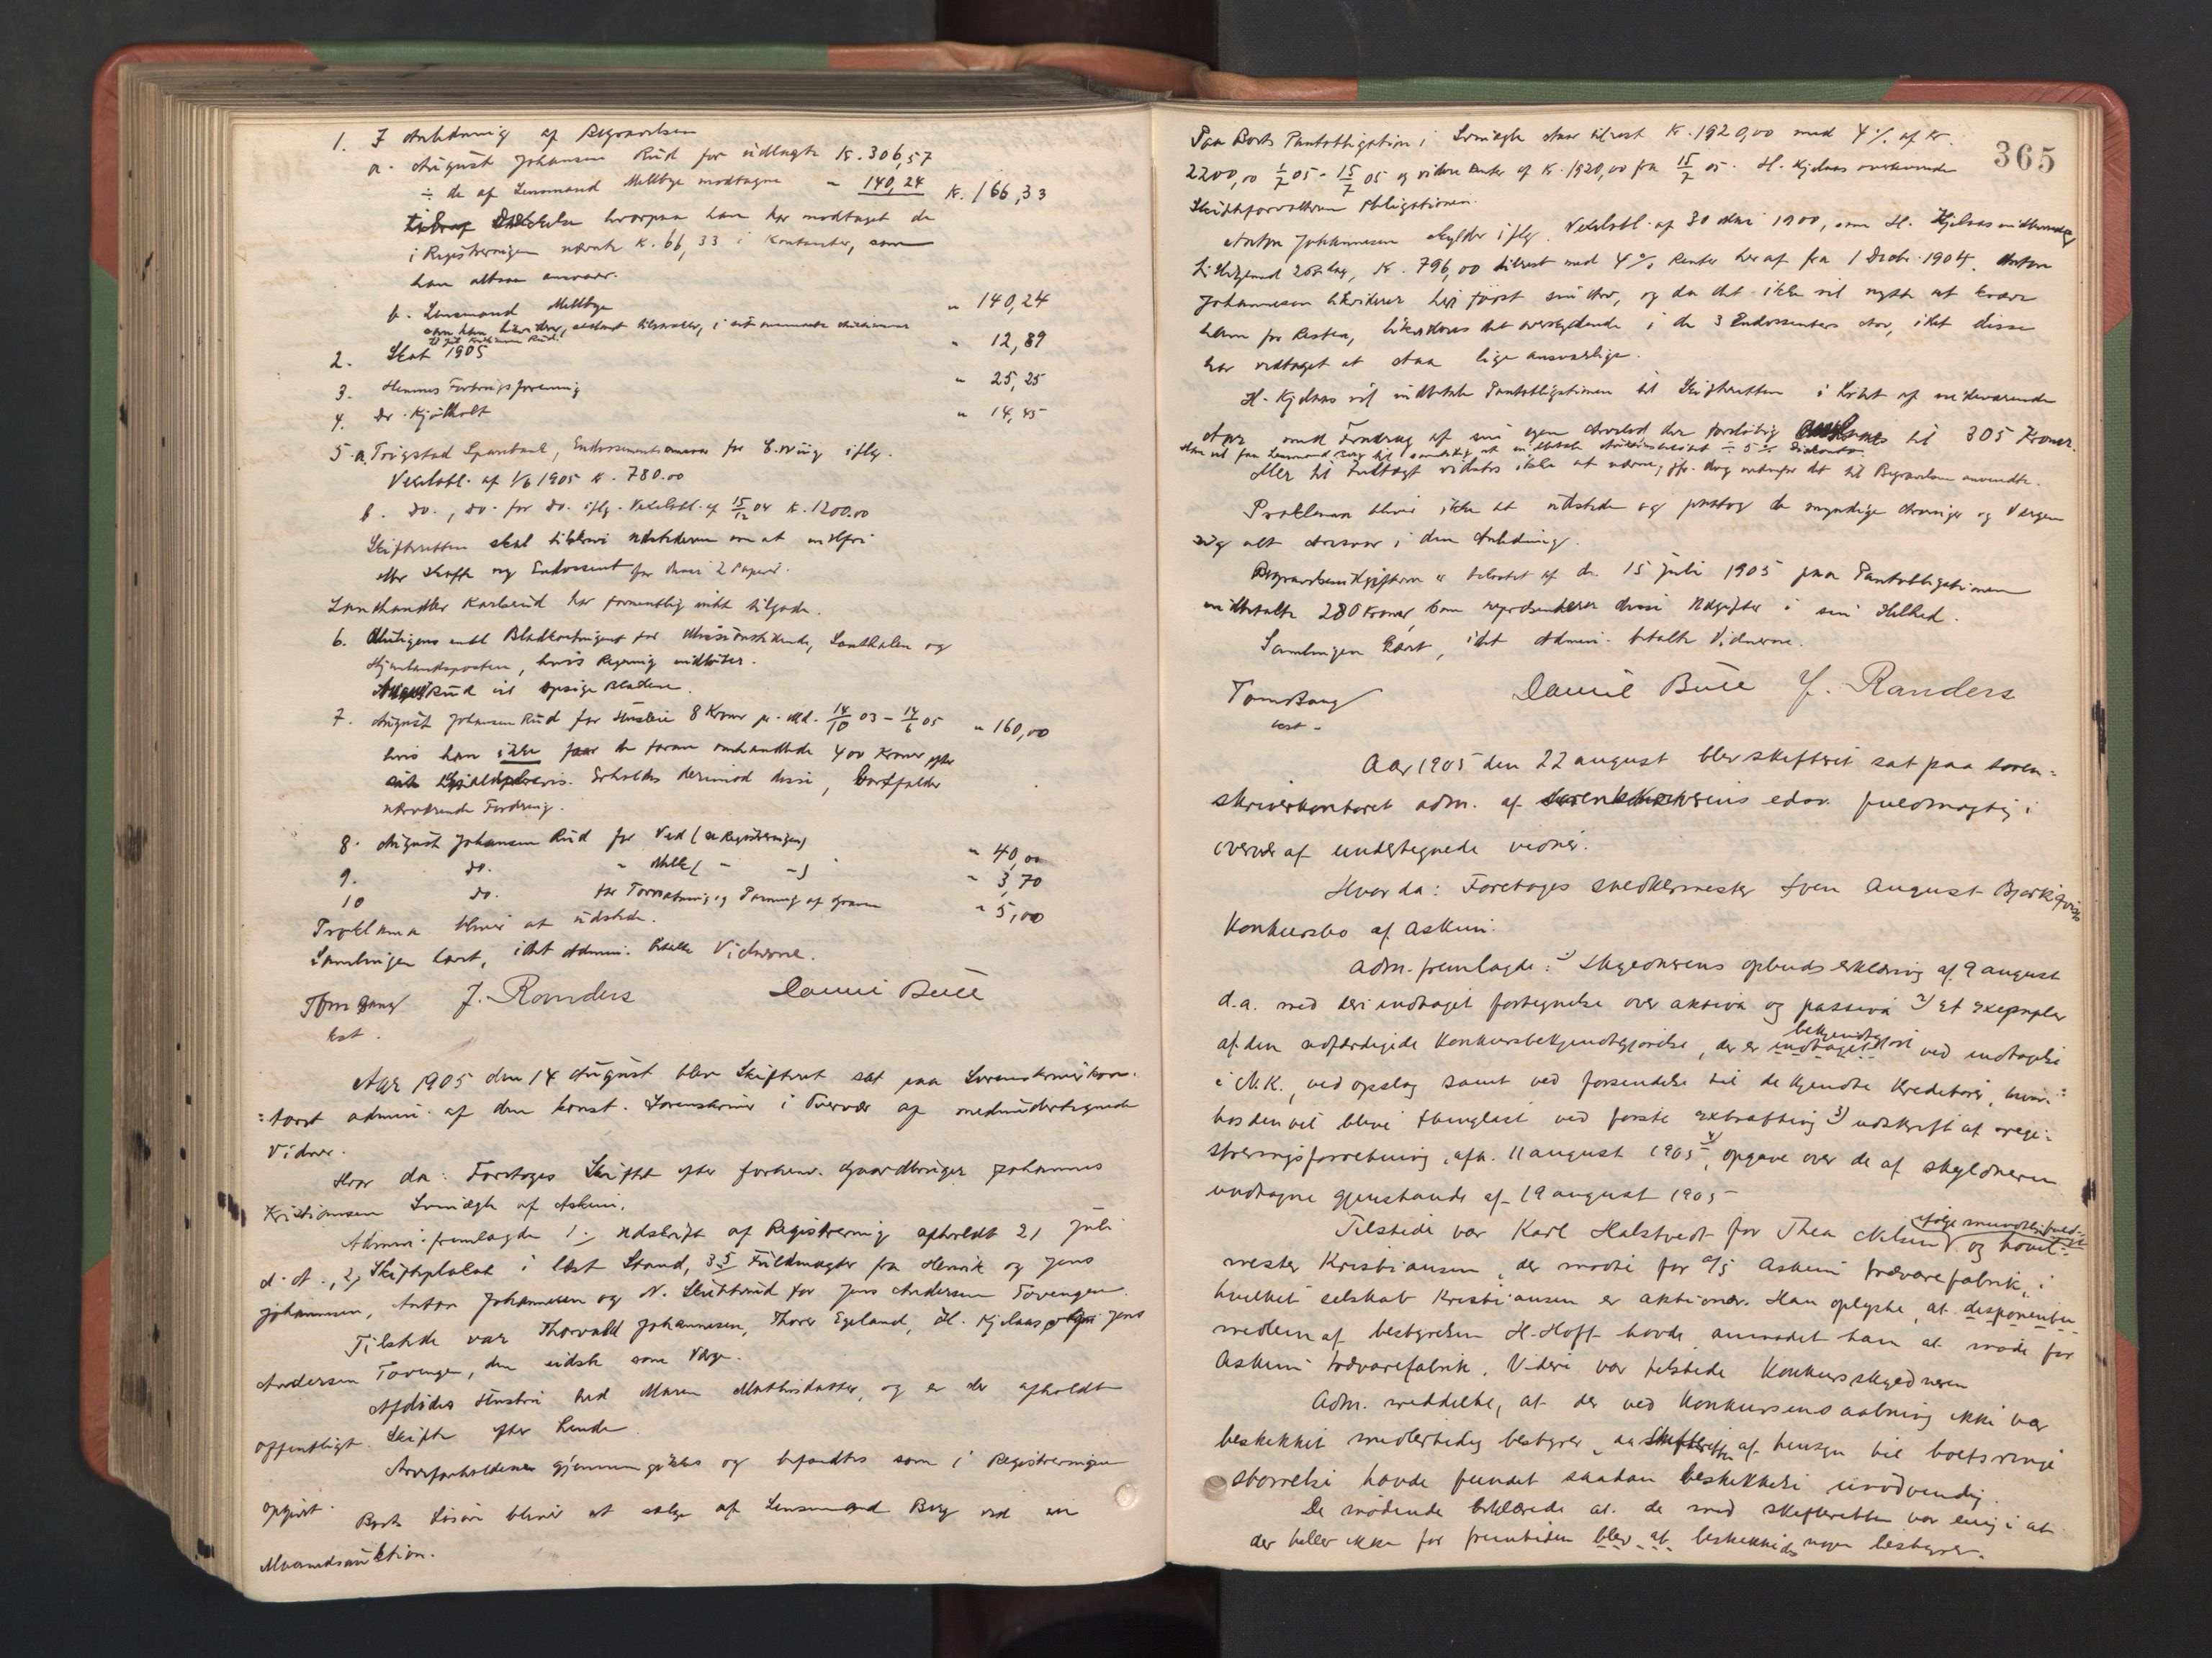 1. I Anledning af Begravelsen
a. August Johansen Rud for udlagte K. 306,57
÷ de af Lensmand Mellbye modtagne " 140,24 K. 166,33
hvorpaa han har modtaget de
i Registreringen nævnte K. 66,33 i Kontanter, som
han altsaa ansvarer.
b. Lensmand Mellbye " 140,24
som han likvider, sedvant tilstaaller, i sit
til Joh. Rud.
2. Skat 1905 " 12,89
3. Hemnes Forbrugsforening " 25,25
4. Dr. Kjølholt " 14,45
5. a. Trøgstad Sparebank, Endossementsansvar for E. iflg.
Vexelobl. af 1/6 1905 K. 780.00
b. Do., do. for do. iflg. Vexelobl. af 15/12 04 K. 1200.00
Skifteretten skal tilskrive Udstederen om at indfri
eller skaffe ny Endossent for disse 2 Papirer.
Landhandler Karlsrud har formentlig intet tilgode.
6. Muligens endel Bladkontingent for Missionstidende, Santhalen og
Hjemlandsposten, hvis Regning indløber.
August Rud vil opsige Bladene.
7. August Johansen Rud for Husleie 8 Kroner pr. Md. 14/10 03 - 14/6 05 " 160,00
hvis han ikke faar de foran omhandlede 400 Kroner efter
sit Gjældsbevis. Erholdes derimod disse, bortfalder
nærværende Fordring.
8. August Johansen Rud for Ved (se Registreringen) " 40,00
9. do. " Melk ( " - ) " 3,70
10 do. for Tornebning og Pasning af Graven " 5,00
Proklama bliver at udstede.
Samlingen hævet, idet Admin. betalte Vidnerne.
Tom Bang J. Randers Daniel Bull
kst.
Aar 1905 den 14 August blev Skifteret sat paa Sorenskriverkon-
:toret admin. af den konst. Sorenskriver i Overvær af medundertegnede
Vidner.
Hvor da: Foretoges Skiftet efter forhenv. Gaardbruger Johannes
Kristiansen Svenægle af Askim.
Admin. fremlagde 1, Udskrift af Registrering afholdt 21 Juli
d. A., 2, Skifteplakat i læst Stand, 3-5 Fuldmagter fra Henrik og Jens
Johannesen, Anton Johannesen og N. Skuttrud for Jens Andersen Tovengen.
Tilstede var Thorvald Johannesen, Thorer Egeland, H. Kjelaas og Jens
Andersen Tovengen, den sidste som Værge.
Afdødes Hustru hed Maren Mathisdatter, og er der afholdt
offentligt Skifte efter hende.
Arveforholdene gjennemgikkes og befandtes som i Registreringen
opgivet.
Boets Løsøre bliver at sælge af Lensmand Berg ved en
Maanedsauktion.
365
Paa Boets Pantobligation i Svenægle staar tilrest K. 1920,00 med 4 % af Kr.
2200,00 1/7 05 - 15/7 05 og videre Renter af K. 1920,00 fra 15/7 05. H. Kjelaas overleverede
Skifteforvalteren Obligationen.
Anton Johannesen skylder iflg. Vexelobl. af 30 Mai 1900, som H. Kjelaas
K. 796,00 tilrest med 4 % Renter heraf fra 1 Decbr. 1904. Anton
Johannesen likviderer heri først sin Arv, og da det ikke vil nytte at kræve
ham for Resten, likvideres det overskydende i de 3 Endossenters Arv, idet disse
har vedtaget at staa lige ansvarlige.
H. Kjelaas vil indbetale Pantobligationen til Skifteretten i Løbet af indeværende
Aar med Fradrag af sin egen Arvelod der foreløbig til 305 Kroner.
Mer til Indtægt vidstes ikke at være, jfr. dog nedenfor det til Begravelsen anvendte.
Proklama bliver ikke at udstede og paatog de myndige Arvinger og Værgen
sig alt Ansvar i den Anledning.
Begravelsesudgifterne er bekostet af de 15 Juli 1905 paa Pantobligationen
indbetalte 280 Kroner, som repræsenterer disse Udgifter i sin Helhed.
Samlingen hævet, idet Admin. betalte Vidnerne.
Tom Bang Daniel Bull J. Randers
kst.
Aar 1905 den 22 august blev skifteret sat paa soren-
skriverkontoret adm. af sorenskriverens edsv. fuldmægtig i
overvær af undertegnede vidner.
Hvor da: Foretoges snedkermester Sven August Bjørkqvists
konkursbo af Askim.
Adm. fremlagde: 1) Skyldnerens opbudserklæring af 9 august
d.a. med deri indtaget fortegnelse over aktiva og passiva 2) Et exemplar
af den udfærdigede konkursbekjendtgjørelse, der er bekjendtgjort ved indtagelse
i N.K., ved opslag samt ved forsendelse til de kjendte kreditorer, hvor-
hos den vil blive thinglæst ved første extrathing 3) udskrift af regi-
streringsforretning, afh. 11 august 1905 4) opgave over de af skyldneren
undtagne gjenstande af 19 august 1905
Tilstede var Karl Halstvedt for Thea Nilsen ifølge mundtlig fuldmagt og høvel-
mester Kristiansen, der mødte for A/S Askim trævarefabrik, i
hvilket selskab Kristiansen er aktionær. Han oplyste, at disponenten
medlem af bestyrelsen H. Hoff havde anmodet ham at møde for
Askim trævarefabrik. Videre var tilstede konkursskyldneren
Adm. meddelte, at der ved konkursens aabning ikke var
beskikket midlertidig bestyrer, da skifteretten af hensyn til boets ringe
størrelse havde fundet saadan beskikkelse unødvendig.
De mødende erklærede at de med skifteretten var enig i at
der heller ikke for fremtiden blev at beskikkes nogen bestyrer.